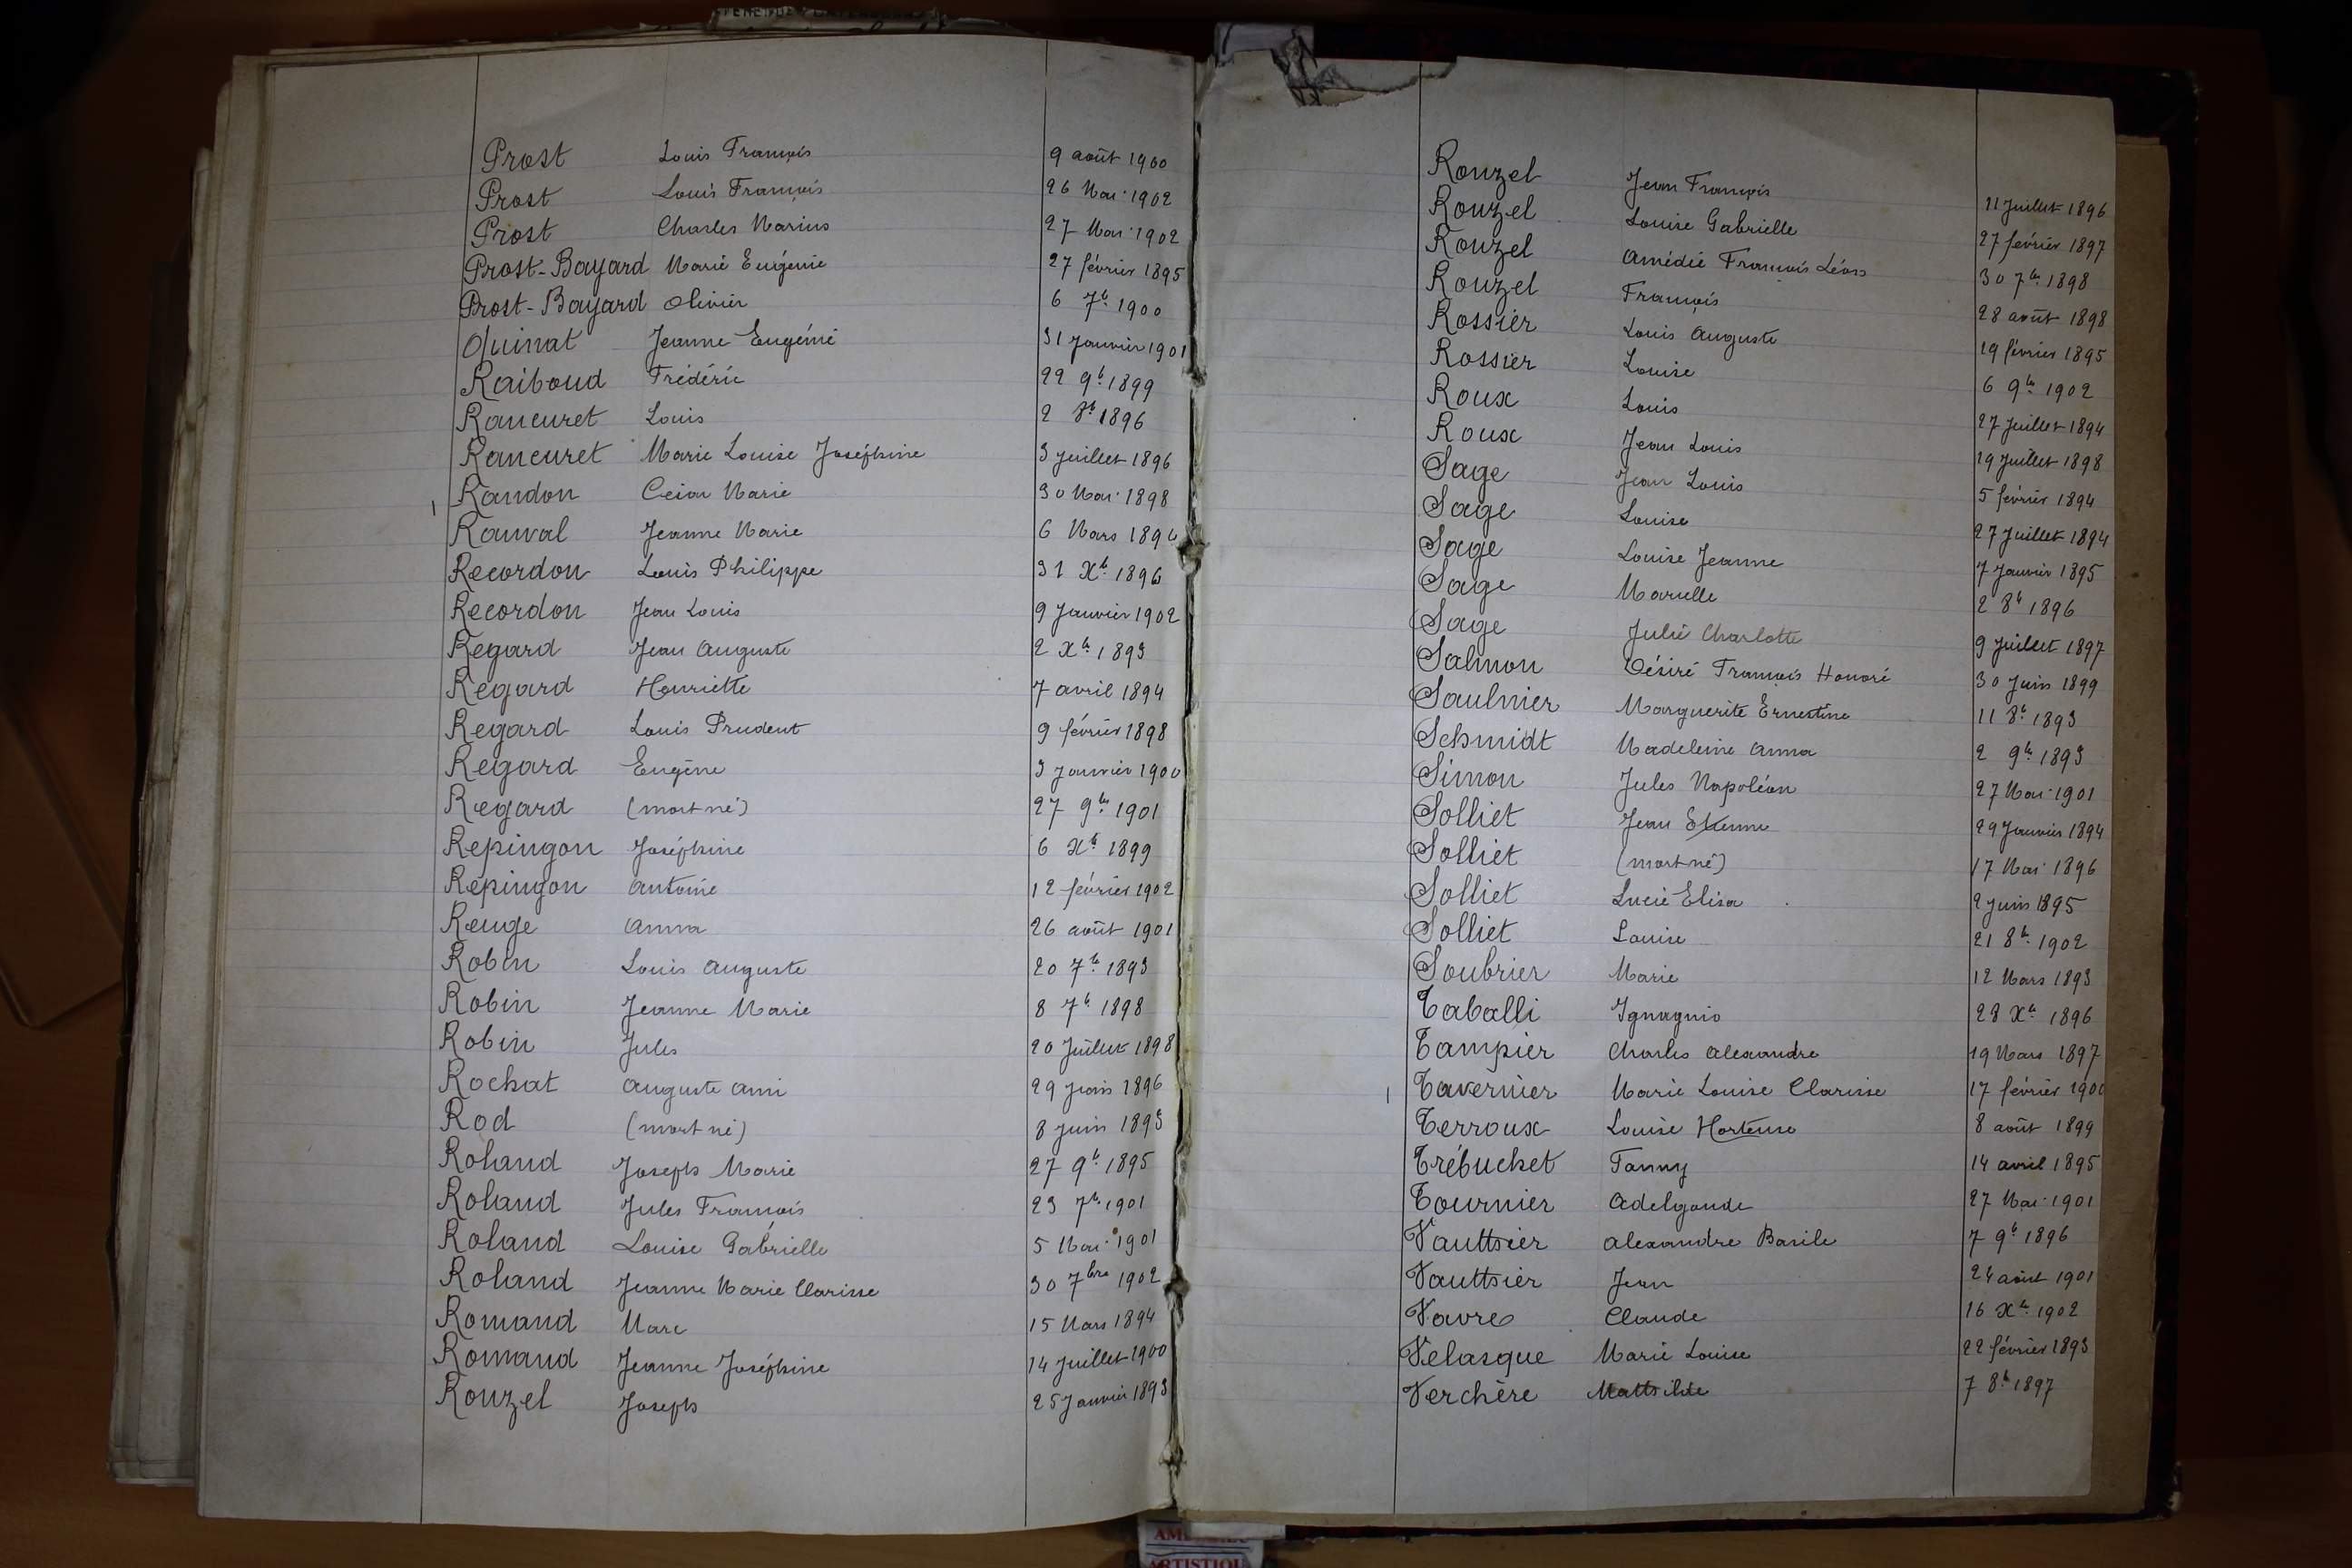 Prost Louis François 9 août 1900
Prost Louis François 26 Mai 1902
Prost Charles Marius 27 Mai 1902
Prost-Bayard Marie Eugénie 27 février 1895
Prost-Bayard Olivier 6 7b. 1900
Quinat Jeanne Eugénie 31 Janvier 1901
Raiboud Frédéric 22 9b. 1899
Rancuret Louis 2 8b. 1896
Rancuret Marie Louise Joséphine 3 Juillet 1896
1 Randon Marie 30 Mai 1898
Rauval Jeanne Marie 6 Mars
Recordon Louis Philippe 31 Xb. 1896
Recordon Jean Louis 9 Janvier 1902
Regard Jean Auguste 2 Xb. 1893
Regard Henriette 7 avril 1894
Regard Louis Prudent 9 février 1898
Regard Eugène 3 Janvier 1900
Regard (mort né) 27 9b. 1901
Repingon Joséphine 6 Xb. 1899
Repingon Antoine 12 février 1902
Reuge Anna 26 août 1901
Robin Louis Auguste 20 7b. 1893
Robin Jeanne Marie 8 7b. 1898
Robin Jules 20 Juillet 1898
Rochat Auguste Ami 29 Juin 1896
Rod (mort né) 8 Juin 1893
Roland Joseph Marie 27 9b. 1895
Roland Jules François 23 7b. 1901
Roland Louise Gabrielle 5 Mai 1901
Roland Jeanne Marie Clarisse 30 7bre 1902
Romand Marc 15 Mars 1894
Romand Jeanne Joséphine 14 Juillet 1900
Rouzel Joseph 25 Janvier 1893
Rouzel Jean François 21 Juillet 1896
Rouzel Louise Gabrielle 27 février 1897
Rouzel Amédée François Léon 30 7b. 1898
Rouzel François 28 août 1898
Rossier Louis Auguste 19 février 1895
Rossier Louise 6 9b. 1902
Roux Louis 27 Juillet 1894
Roux Jean Louis 19 Juillet 1898
Sage Jean Louis 5 février 1894
Sage Louise 27 Juillet 1894
Sage Louise Jeanne 7 Janvier 1895
Sage Marielle 2 8b. 1896
Sage Julie Charlotte 9 Juillet 1897
Salmon Désiré François Honoré 30 Juin 1899
Saulnier Marguerite Ernestine 11 8b. 1893
Schmidt Madeleine Anna 2 9b. 1893
Simon Jules Napoléon 27 Mai 1901
Solliet Jean Etienne 29 Janvier 1894
Solliet (mort né) 17 Mai 1896
Solliet Lucie Elisa 2 Juin 1895
Solliet Louise 21 8b. 1902
Soubrier Marie 12 Mars 1893
Taballi Ignagnio 28 Xb. 1896
Tampier Charles Alexandre 19 Mars 1897
1 Tavernier Marie Louise Clarisse 17 février 1900
Terroux Louise Hortense 8 août 1899
Trébuchet Fanny 14 avril 1895
Tournier Adelgonde 27 Mai 1901
Vauttsier Alexandre Basile 7 9b. 1896
Vauttsier Jean 24 août 1901
Vavre Claude 16 Xb. 1902
Velasque Marie Louise 22 février 1893
Verchère Matthilde 7 8b. 1897